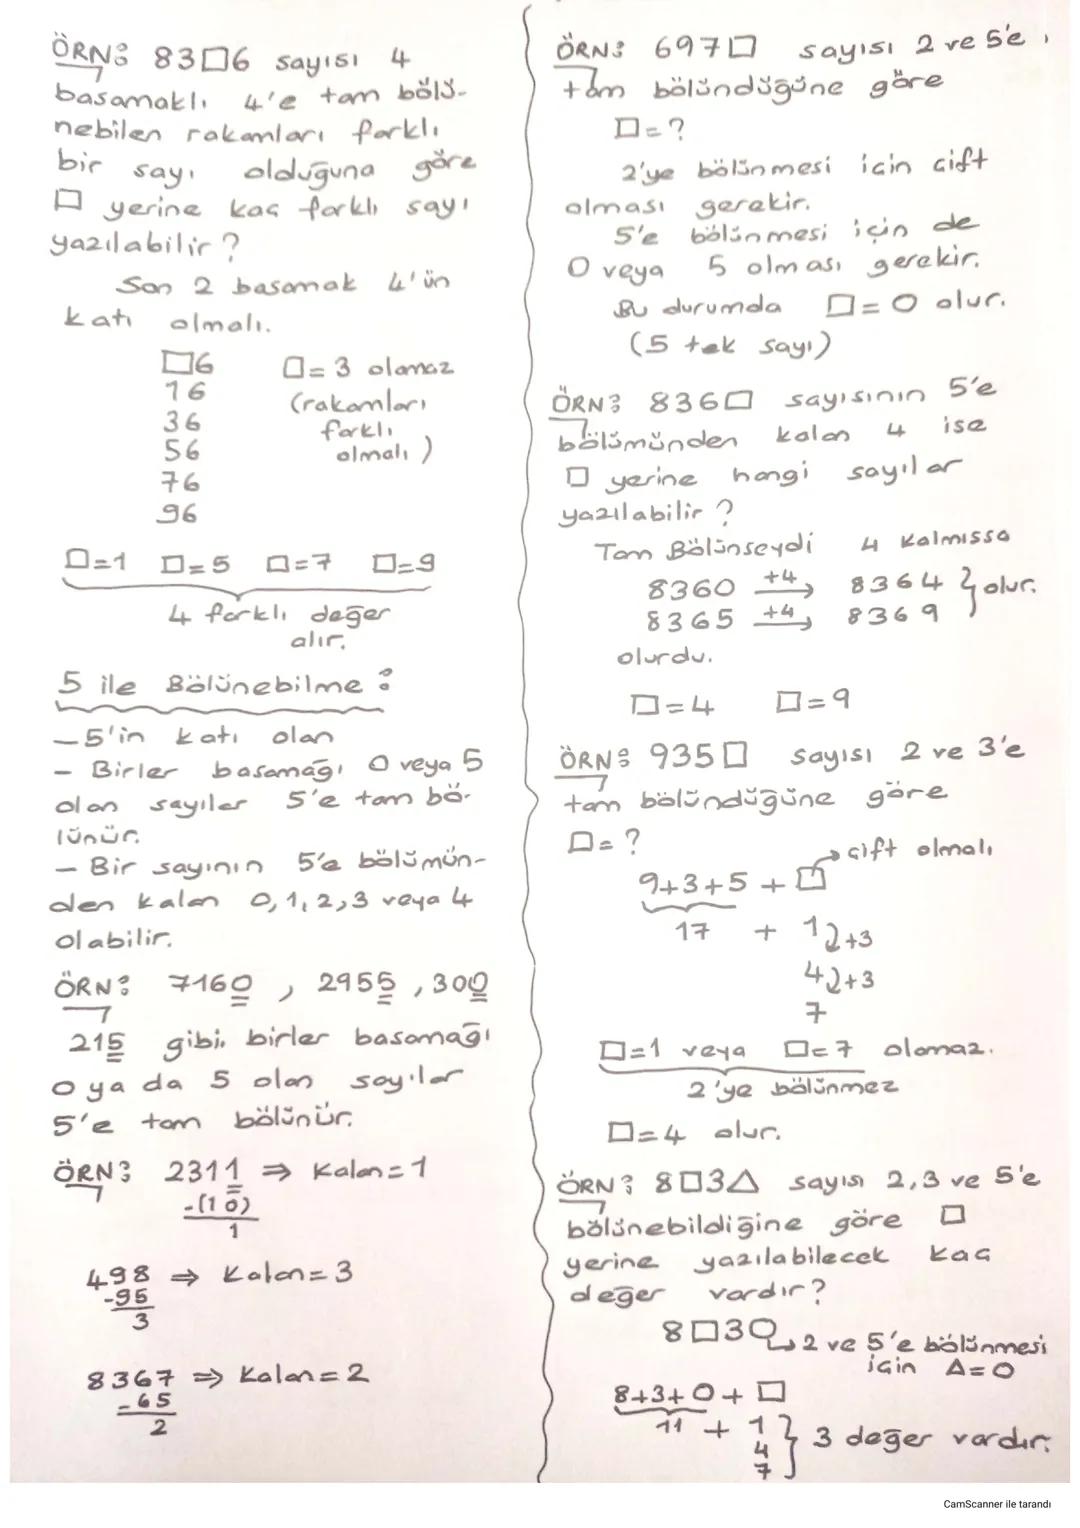 ÖRN: 83□6 sayısı 4
basamaklı 4'e tam bölü-
nebilen rakamları farklı
bir sayı olduğuna göre
□ yerine kaç farklı sayı
yazılabilir?
Son 2 basamak 4'ün
katı olmalı.
□6 □=3 olamaz
16 (rakamları
36 farklı
56 olmalı)
76
96
□=1 □=5 □=7 □=9
4 farklı değer
alır.
5 ile Bölünebilme:
-5'in katı olan
- Birler basamağı 0 veya 5
olan sayılar 5'e tam bö-
lünür.
- Bir sayının 5'e bölümün-
den kalan 0,1,2,3 veya 4
olabilir.
ÖRN: 7160, 2955, 300
215 gibi birler basamağı
0 ya da 5 olan sayılar
5'e tam bölünür.
ÖRN: 2311 ⇒ Kalan=1
-(10)
1
498 ⇒ Kalan=3
-95
3
8367 ⇒ Kalan=2
-65
2
ÖRN: 697□ sayısı 2 ve 5'e
tam bölündüğüne göre
□=?
2'ye bölünmesi için çift
olması gerekir.
5'e bölünmesi için de
0 veya 5 olması gerekir.
Bu durumda □=0 olur.
(5 tek sayı)
ÖRN: 836□ sayısının 5'e
bölümünden kalan 4 ise
□ yerine hangi sayılar
yazılabilir?
Tam Bölünseydi 4 kalmıssa
8360 +4→ 8364 } olur.
8365 +4→ 8369
olurdu.
□=4 □=9
ÖRN: 935□ sayısı 2 ve 3'e
tam bölündüğüne göre
□=?
→çift olmalı
9+3+5+□
17 + 1 +3
4 +3
7
□=1 veya □=7 olamaz.
2'ye bölünmez
□=4 olur.
ÖRN: 8□3△ sayısı 2,3 ve 5'e
bölünebildiğine göre □
yerine yazılabilecek kaç
değer vardır?
8□30→2 ve 5'e bölünmesi
için △=0
8+3+0+□
11 + 1
4 } 3 değer vardır.
7
CamScanner ile tarandı